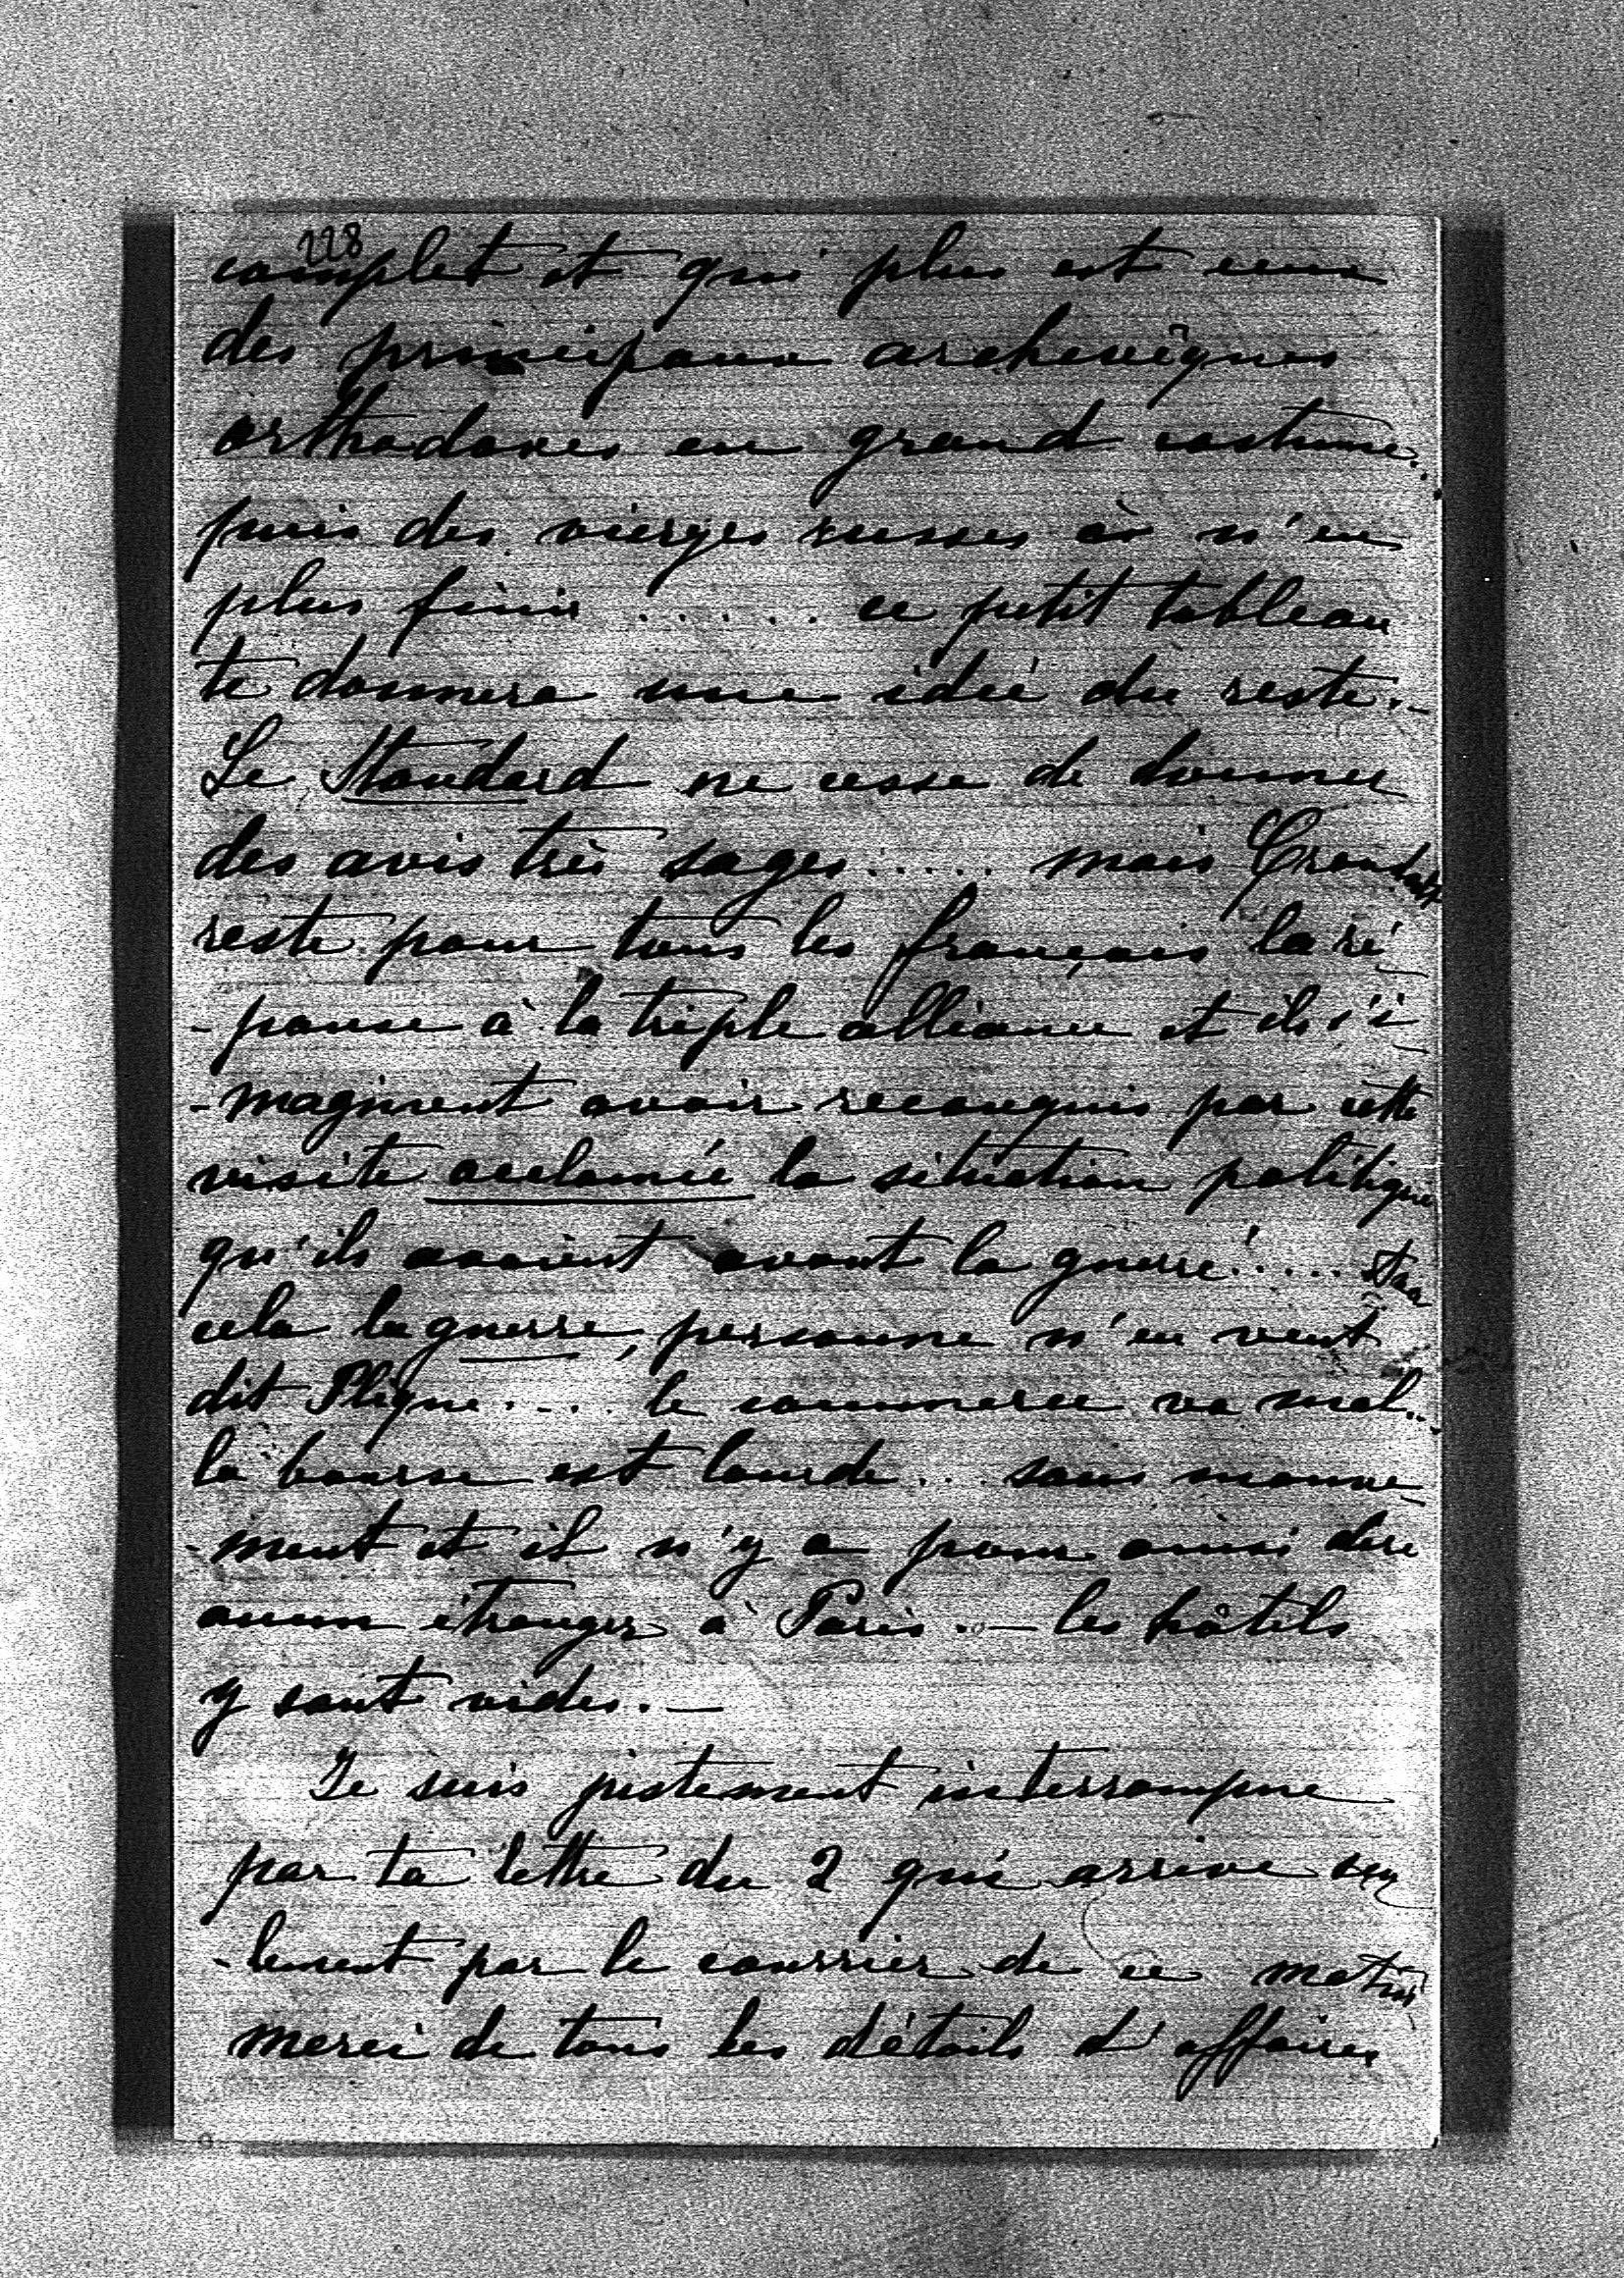 228
complet et qui plus est ceux
des principaux archevêques
orthodoxes en grand costume..
puis des vierges russes à n'en
plus finir ...... ce petit tableau
te donnera une idée du reste.-
Le Standard ne cesse de donner
des avis très sages..... mais Cronstadt
reste pour tous les français la ré
-ponse à la triple alliance et ils s'i
-maginent avoir reconquis par cette
visite acclamée la situation politique
qu'ils avaient avant la guerre!.....
cela la guerre, personne n'en veut
dit Pligne.... le commerce va mal..
la bourse est lourde... sans mouve
-ment et il n'y a pour ainsi dire
aucun étranger à Paris.— les hôtels
y sont vides.—
Je suis justement interrompue
par ta lettre du 2 qui arrive seu
-lement par le courrier de ce matin
merci de tous les détails d'affaires